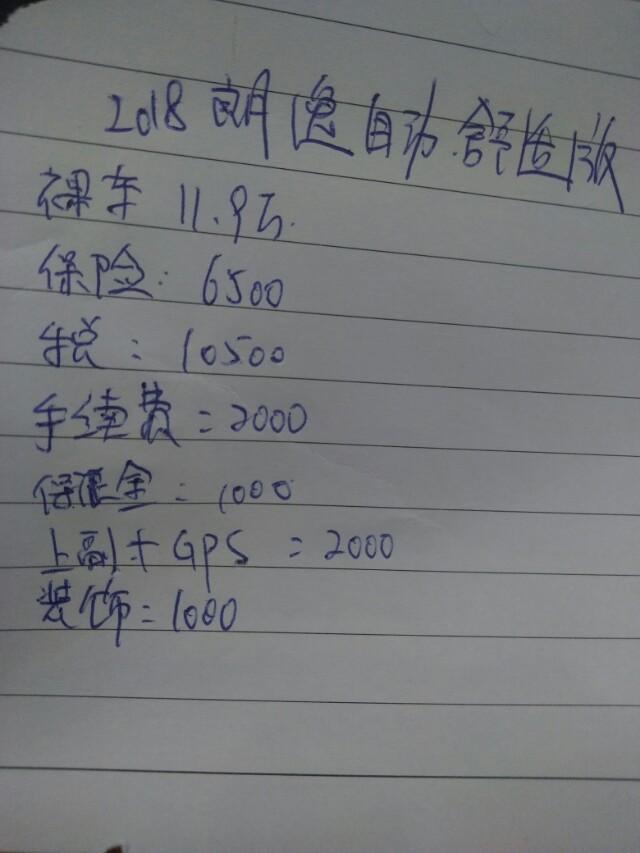 2018 朗逸自动舒适版
裸车 11.9万.
保险: 6500
车税: 10500
手续费=2000
保证金=1000
上副+GPS=2000
装饰=1000